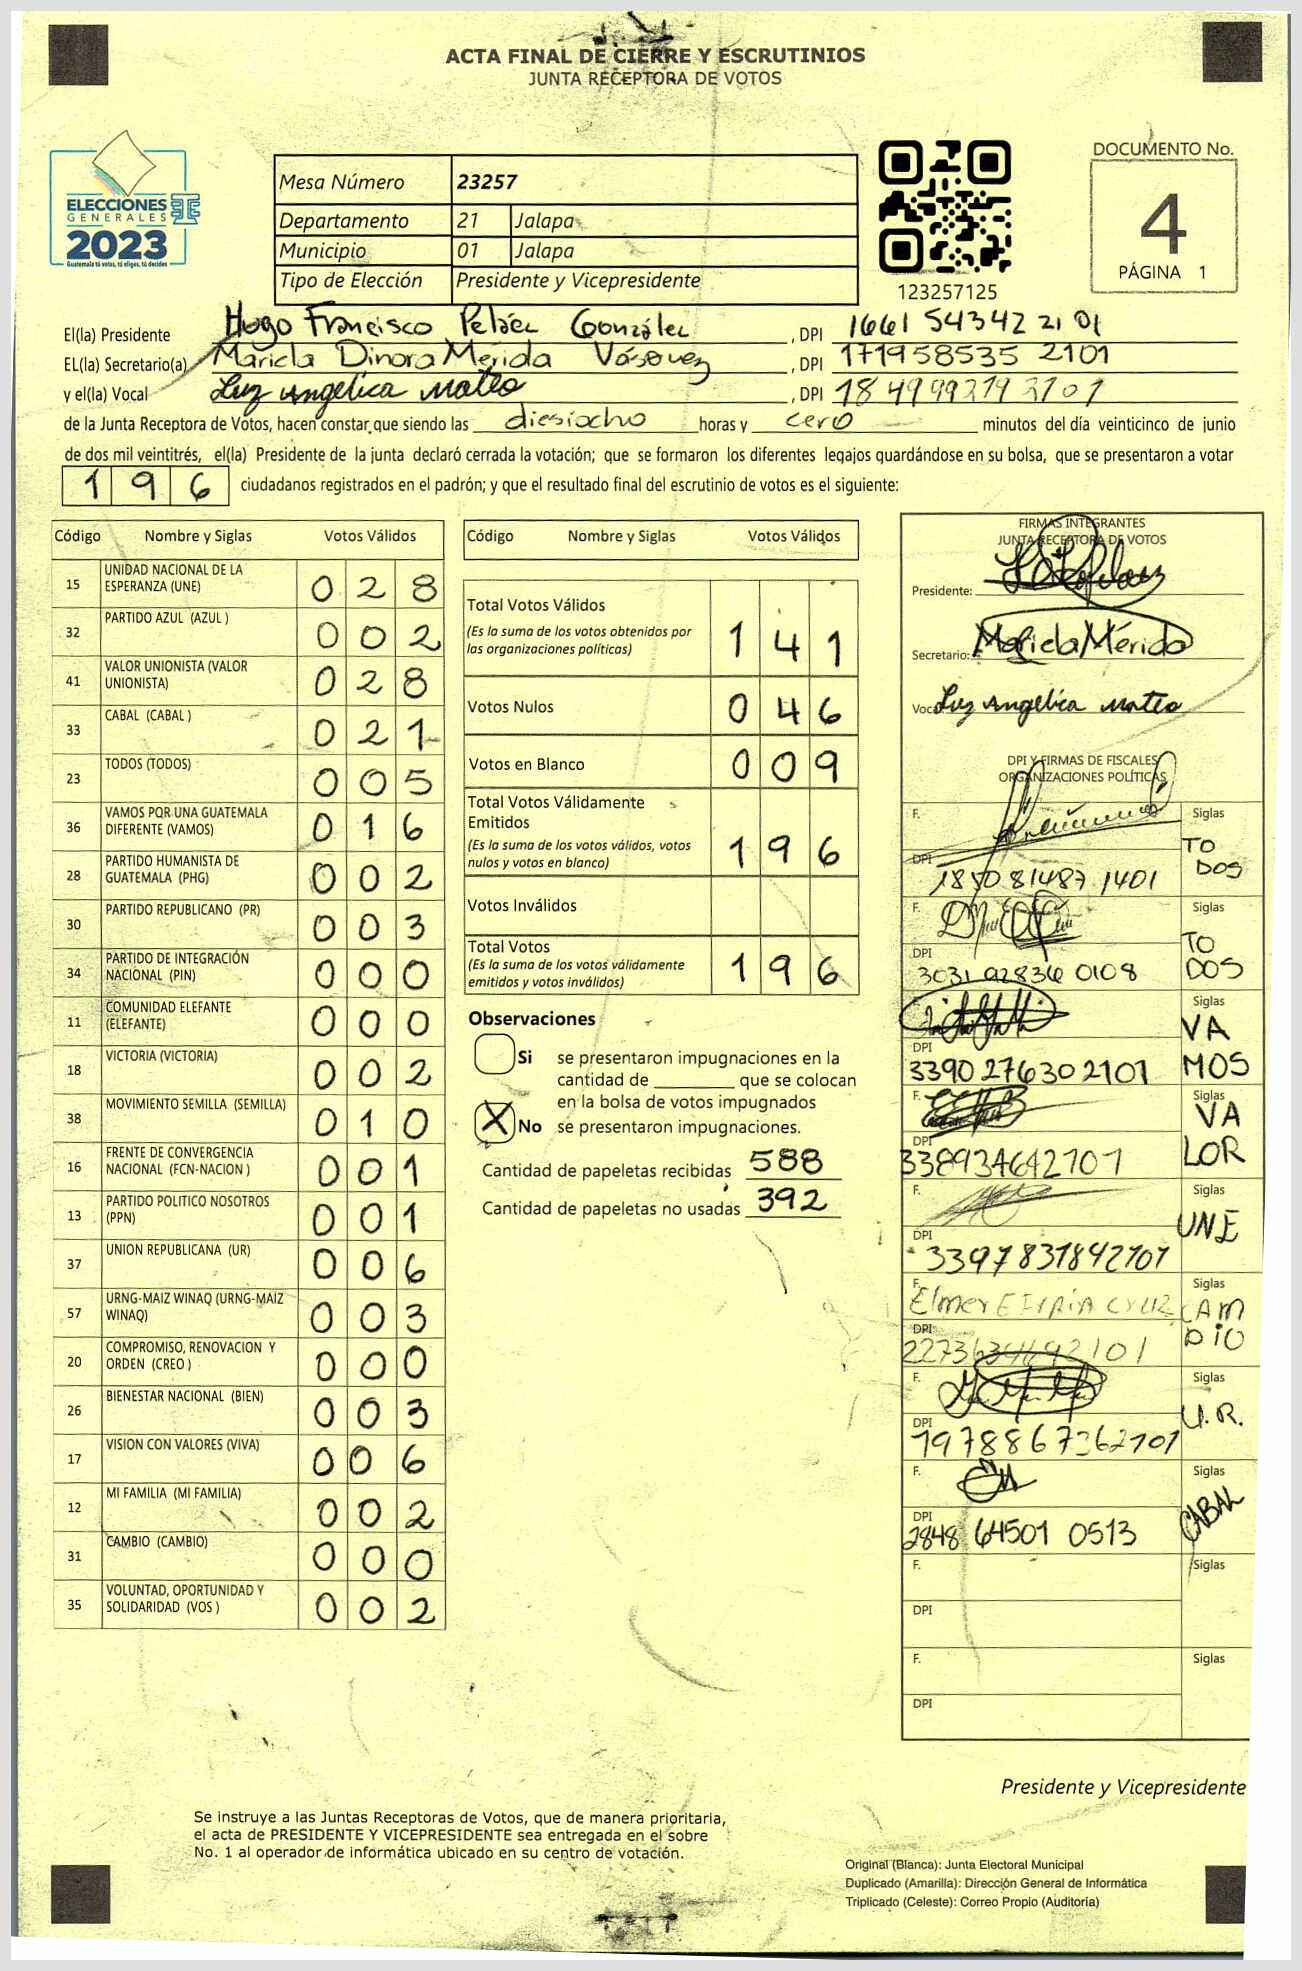 ACTA FINAL DE CIERRE Y ESCRUTINIOS
JUNTA RECEPTORA DE VOTOS
ELECCIONES
GENERALES
2023
Guatemala tú votas, tú eliges, tú decides
Mesa Número 23257
Departamento 21 Jalapa
Municipio 01 Jalapa
Tipo de Elección Presidente y Vicepresidente
123257125
DOCUMENTO No.
4
PÁGINA 1
El(la) Presidente Hugo Francisco Peláez González, DPI 1661 54342 2101
EL(la) Secretario(a) Mariela Dinora Mérida Vásquez, DPI 171958535 2101
y el(la) Vocal Luz Angélica Mateo, DPI 18499
de la Junta Receptora de Votos, hacen constar que siendo las diesiocho horas y cero minutos del día veinticinco de junio
de dos mil veintitrés, el(la) Presidente de la junta declaró cerrada la votación; que se formaron los diferentes legajos guardándose en su bolsa, que se presentaron a votar
196 ciudadanos registrados en el padrón; y que el resultado final del escrutinio de votos es el siguiente:
Código Nombre y Siglas Votos Válidos
15 UNIDAD NACIONAL DE LA ESPERANZA (UNE) 028
32 PARTIDO AZUL (AZUL ) 002
41 VALOR UNIONISTA (VALOR UNIONISTA) 028
33 CABAL (CABAL ) 021
23 TODOS (TODOS) 005
36 VAMOS POR UNA GUATEMALA DIFERENTE (VAMOS) 016
28 PARTIDO HUMANISTA DE GUATEMALA (PHG) 002
30 PARTIDO REPUBLICANO (PR) 003
34 PARTIDO DE INTEGRACIÓN NACIONAL (PIN) 000
11 COMUNIDAD ELEFANTE (ELEFANTE) 000
18 VICTORIA (VICTORIA) 002
38 MOVIMIENTO SEMILLA (SEMILLA) 010
16 FRENTE DE CONVERGENCIA NACIONAL (FCN-NACION ) 001
13 PARTIDO POLITICO NOSOTROS (PPN) 001
37 UNION REPUBLICANA (UR) 006
57 URNG-MAIZ WINAQ (URNG-MAIZ WINAQ) 003
20 COMPROMISO, RENOVACION Y ORDEN (CREO ) 000
26 BIENESTAR NACIONAL (BIEN) 003
17 VISION CON VALORES (VIVA) 006
12 MI FAMILIA (MI FAMILIA) 002
31 CAMBIO (CAMBIO) 000
35 VOLUNTAD, OPORTUNIDAD Y SOLIDARIDAD (VOS ) 002
Código Nombre y Siglas Votos Válidos
Total Votos Válidos
(Es la suma de los votos obtenidos por las organizaciones políticas) 141
Votos Nulos 046
Votos en Blanco 009
Total Votos Válidamente Emitidos
(Es la suma de los votos válidos, votos nulos y votos en blanco) 196
Votos Inválidos
Total Votos
(Es la suma de los votos válidamente emitidos y votos inválidos) 196
Observaciones
Si se presentaron impugnaciones en la
cantidad de ________ que se colocan
en la bolsa de votos impugnados
X No se presentaron impugnaciones.
Cantidad de papeletas recibidas 588
Cantidad de papeletas no usadas 392
FIRMAS INTEGRANTES
JUNTA RECEPTORA DE VOTOS
Presidente:
Secretario: Mariela Mérida
Vocal Luz Angélica Mateo
DPI Y FIRMAS DE FISCALES
ORGANIZACIONES POLÍTICAS
F. Siglas TODOS
DPI 1850 81487 1401
F. Siglas TODOS
DPI 3031 02836 0108
F. Siglas VAMOS
DPI 3390 27630 2101
F. Siglas VALOR
DPI
F. Siglas UNE
DPI 3397831842101
F. Elmer Efraín Cruz Siglas CAMDIO
DPI
F. Siglas U.R.
DPI 1978867362101
F. Siglas CABAL
DPI 2848 64501 0513
F. Siglas
DPI
F. Siglas
DPI
Presidente y Vicepresidente
Se instruye a las Juntas Receptoras de Votos, que de manera prioritaria,
el acta de PRESIDENTE Y VICEPRESIDENTE sea entregada en el sobre
No. 1 al operador de informática ubicado en su centro de votación.
Original (Blanca): Junta Electoral Municipal
Duplicado (Amarilla): Dirección General de Informática
Triplicado (Celeste): Correo Propio (Auditoría)